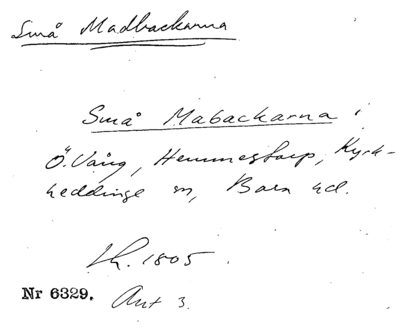 Små Madbackarna
Små Mabackarna i
Ö. Vång, Hemmestorp, Kyrk-
heddinge sn, Bara hd.
Lh. 1805.
Nr 6329. Akt 3.